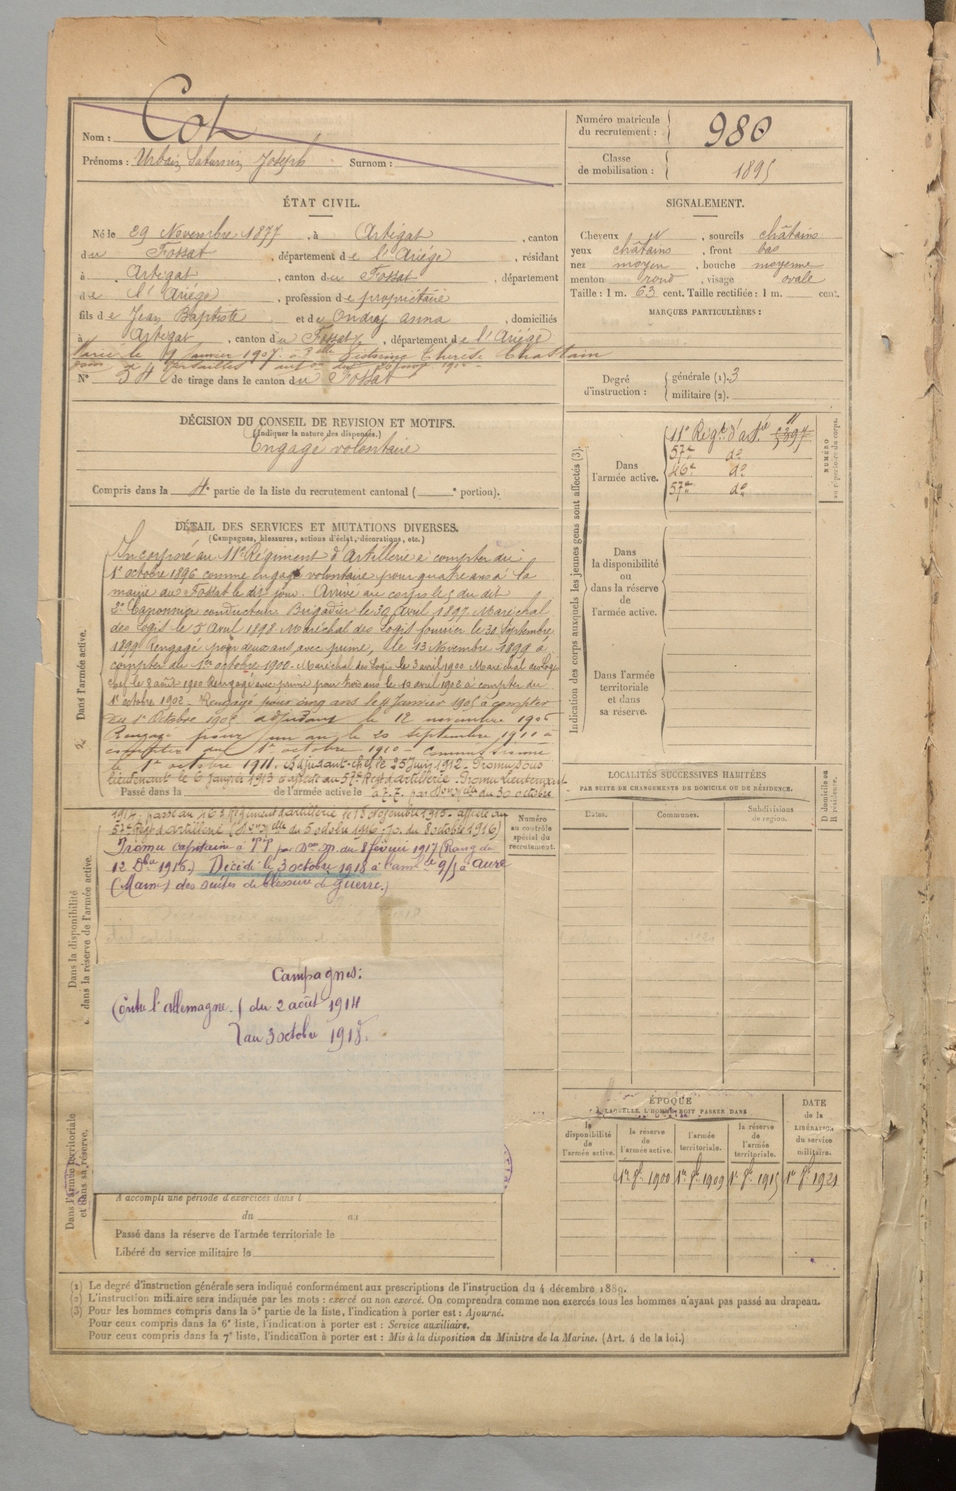 Nom : Cot
Prénoms : Urbain Saturnin Joseph Surnom :
Numéro matricule du recrutement : 980
Classe de mobilisation : 1895
ÉTAT CIVIL.
Né le 29 Novembre 1877, à Artigat, canton
du Fossat, département de l'Ariège, résidant
à Artigat, canton du Fossat, département
de l'Ariège, profession de propriétaire
fils de Jean Baptiste et de Ondraz anna, domiciliés
à Artigat, canton du Fossat, département de l'Ariège
Marié le 9 Janvier 1907 à Thérèse Chattain
Versailles
N° 34 de tirage dans le canton du Fossat
SIGNALEMENT.
Cheveux et, sourcils châtains
yeux châtains, front bas
nez moyen, bouche moyenne
menton rond, visage ovale
Taille : 1 m. 63 cent. Taille rectifiée : 1 m. cent.
MARQUES PARTICULIÈRES :
Degré d'instruction : générale (1). 3
militaire (2).
DÉCISION DU CONSEIL DE REVISION ET MOTIFS.
(Indiquer la nature des dispenses.)
Engagé volontaire
Compris dans la 4e partie de la liste du recrutement cantonal ( e portion).
DÉTAIL DES SERVICES ET MUTATIONS DIVERSES.
(Campagnes, blessures, actions d'éclat, décorations, etc.)
Dans l'armée active.
Incorporé au 11e Régiment d'Artillerie à compter du
1er octobre 1896 comme engagé volontaire pour quatre ans à la
mairie du Fossat le dit jour. Arrivé au corps le 5 du dit
2e Canonnier conducteur Brigadier le 30 Avril 1897 Maréchal
des logis le 5 Avril 1898 Maréchal des Logis fourrier le 30 Septembre
1899 Rengagé pour deux ans avec prime, le 13 Novembre 1899 à
compter du 1er octobre 1900. Maréchal des Logis le 3 avril 1900 Maréchal des Logis
chef le 2 août 1900 Rengagé avec prime pour trois ans le 10 avril 1902 à compter du
1er octobre 1902. Rengagé pour cinq ans le 9 Janvier 1905 à compter
du 1er Octobre 1905 adjudant le 12 novembre 1906
Rengagé pour un an le 20 septembre 1910 à
compter du 1er octobre 1910 - Commissionné
le 1er octobre 1911. Adjudant-chef le 25 Juin 1912. Promu sous
lieutenant le 6 1913 affecté au 57e Regt d'artillerie. Promu lieutenant
Passé dans la de l'armée active le à T.T. par du 30 octobre
1914. passé au 163 Régiment d'artillerie le 15 1915. affecté au
57e Regt d'artillerie ( du 5 octobre 1916 J.O. du 8 octobre 1916)
Promu Capitaine à TT par Don M. du 8 février 1917 (Rang du
12 Dbre 1916) Décédé le 3 octobre 1918 à l'ambce 9/5 à auve
(Marne) des suites de blessure de guerre.)
Dans la disponibilité
ou dans la réserve de l'armée active.
Campagnes:
Contre l'allemagne. du 2 août 1914
au 3 octobre 1918.
Dans l'armée territoriale
et dans sa réserve.
A accompli une période d'exercices dans l
du au
Passé dans la réserve de l'armée territoriale le
Libéré du service militaire le
Indication des corps auxquels les jeunes gens sont affectés (3).
Dans l'armée active.
11e Régt d'art.
57e do
46e do
57e do
NUMÉRO au répertoire du corps.
Dans la disponibilité ou dans la réserve de l'armée active.
Dans l'armée territoriale et dans sa réserve.
Numéro au contrôle spécial du recrutement.
LOCALITÉS SUCCESSIVES HABITÉES
PAR SUITE DE CHANGEMENTS DE DOMICILE OU DE RÉSIDENCE.
Dates. Communes. Subdivisions de région.
D domicile ou R résidence.
ÉPOQUE
A LAQUELLE L'HOMME DOIT PASSER DANS
la disponibilité de l'armée active.
la réserve de l'armée active.
l'armée territoriale.
la réserve de l'armée territoriale.
DATE de la LIBÉRATION du service militaire.
1er 8bre 1900 1er 8bre 1909 1er 8bre 1915 1er 8bre 1921
(1) Le degré d'instruction générale sera indiqué conformément aux prescriptions de l'instruction du 4 décembre 1889.
(2) L'instruction militaire sera indiquée par les mots : exercé ou non exercé. On comprendra comme non exercés tous les hommes n'ayant pas passé au drapeau.
(3) Pour les hommes compris dans la 5e partie de la liste, l'indication à porter est : Ajourné.
Pour ceux compris dans la 6e liste, l'indication à porter est : Service auxiliaire.
Pour ceux compris dans la 7e liste, l'indication à porter est : Mis à la disposition du Ministre de la Marine. (Art. 4 de la loi.)